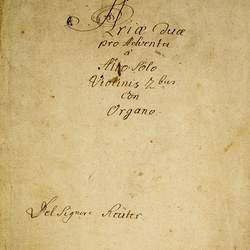 Ariæ duæ
pro Adventu
à
Alto Solo
Violinis 2bus
Con
Organo.
Del Signore Reüter.